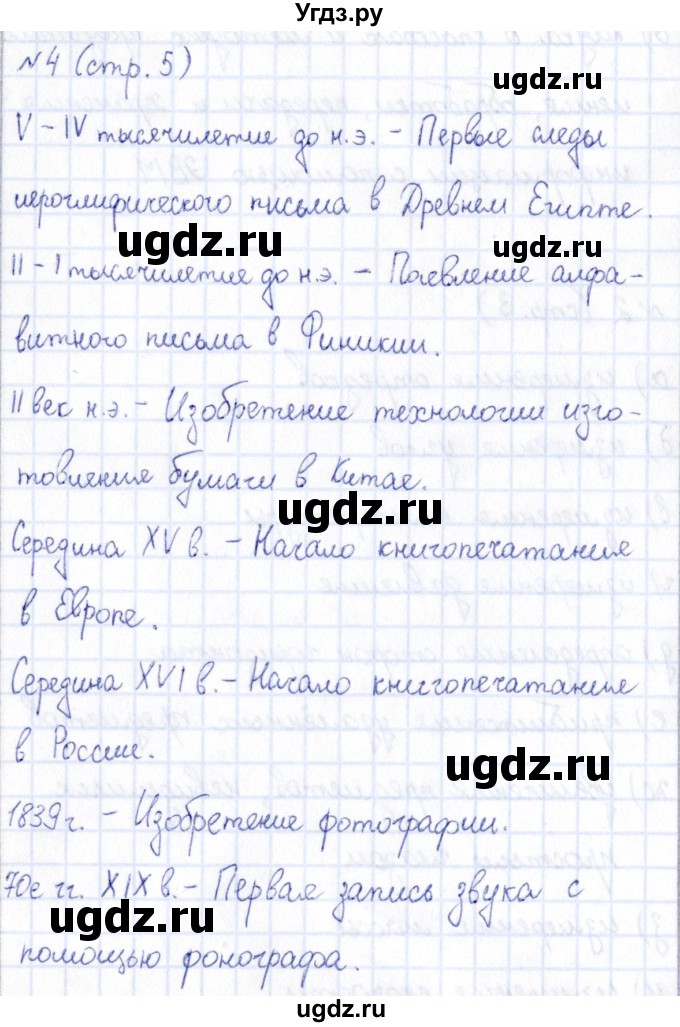 Угдз.ру
№4 (стр. 5)
ugdz.ru
V - IV тысячилетие до н.э. - Первые следы
иероглифического письма в Древнем Египте.
ugdz.ru
II - I тысячилетие до н.э. - Появление алфа-
витного письма в Финикии.
II век н.э. - Изобретение технологии изго-
товления бумаги в Китае.
ugdz.ru
Середина XV в. - Начало книгопечатания
в Европе.
Середина XVI в. - Начало книгопечатание
в России.
ugdz.ru
1839 г. - Изобретение фотографии.
70е гг. XIX в. - Первая запись звука с
ugdz.ru
помощью фонографа.
ugdz.ru